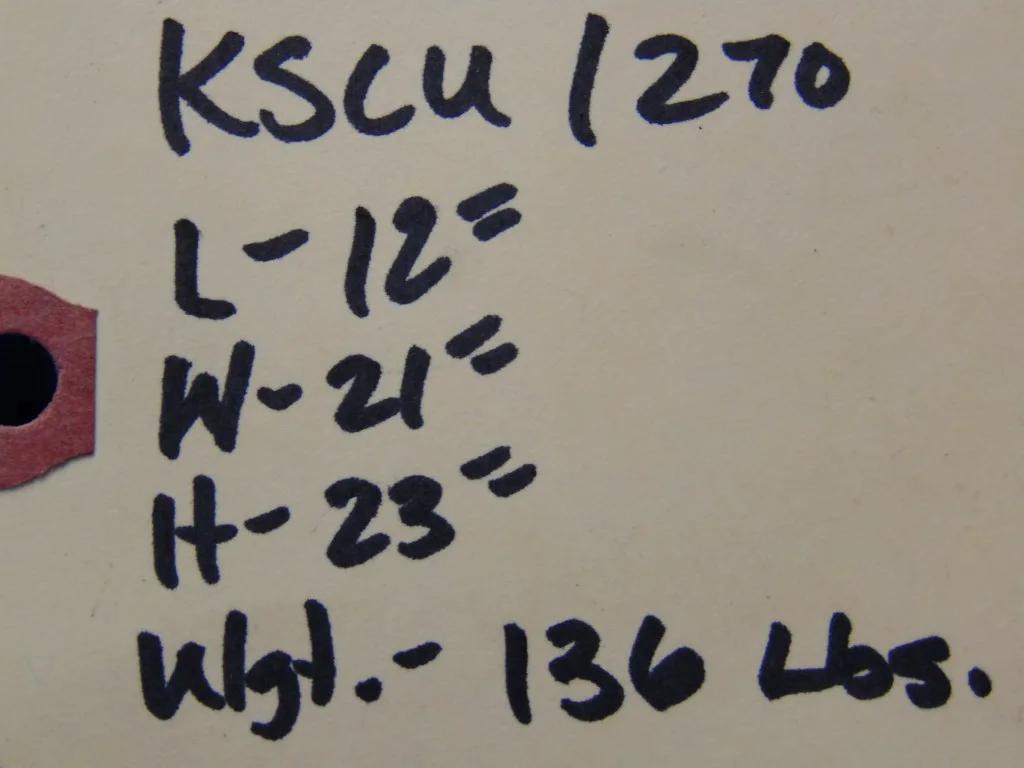 KSCU 1270
L- 12"
W- 21"
H- 23"
Wgt.- 136 Lbs.